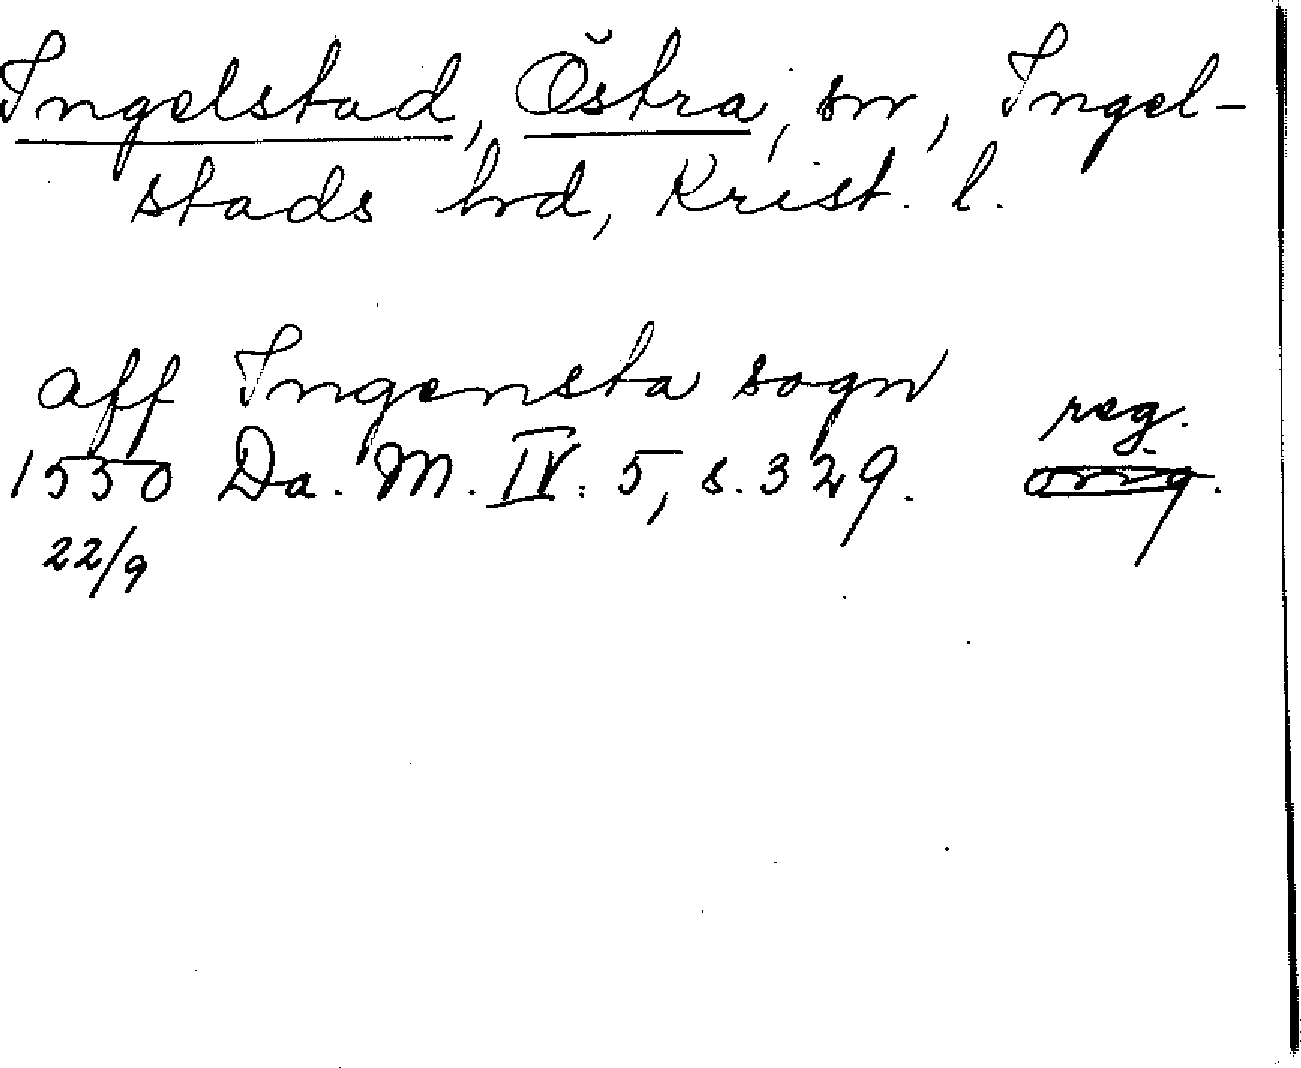 Ingelstad, Östra, sn, Ingel-
stads hd, Krist. l.
aff Ingensta sogn
reg.
1550 Da. M. IV: 5, s. 329. orig.
22/9